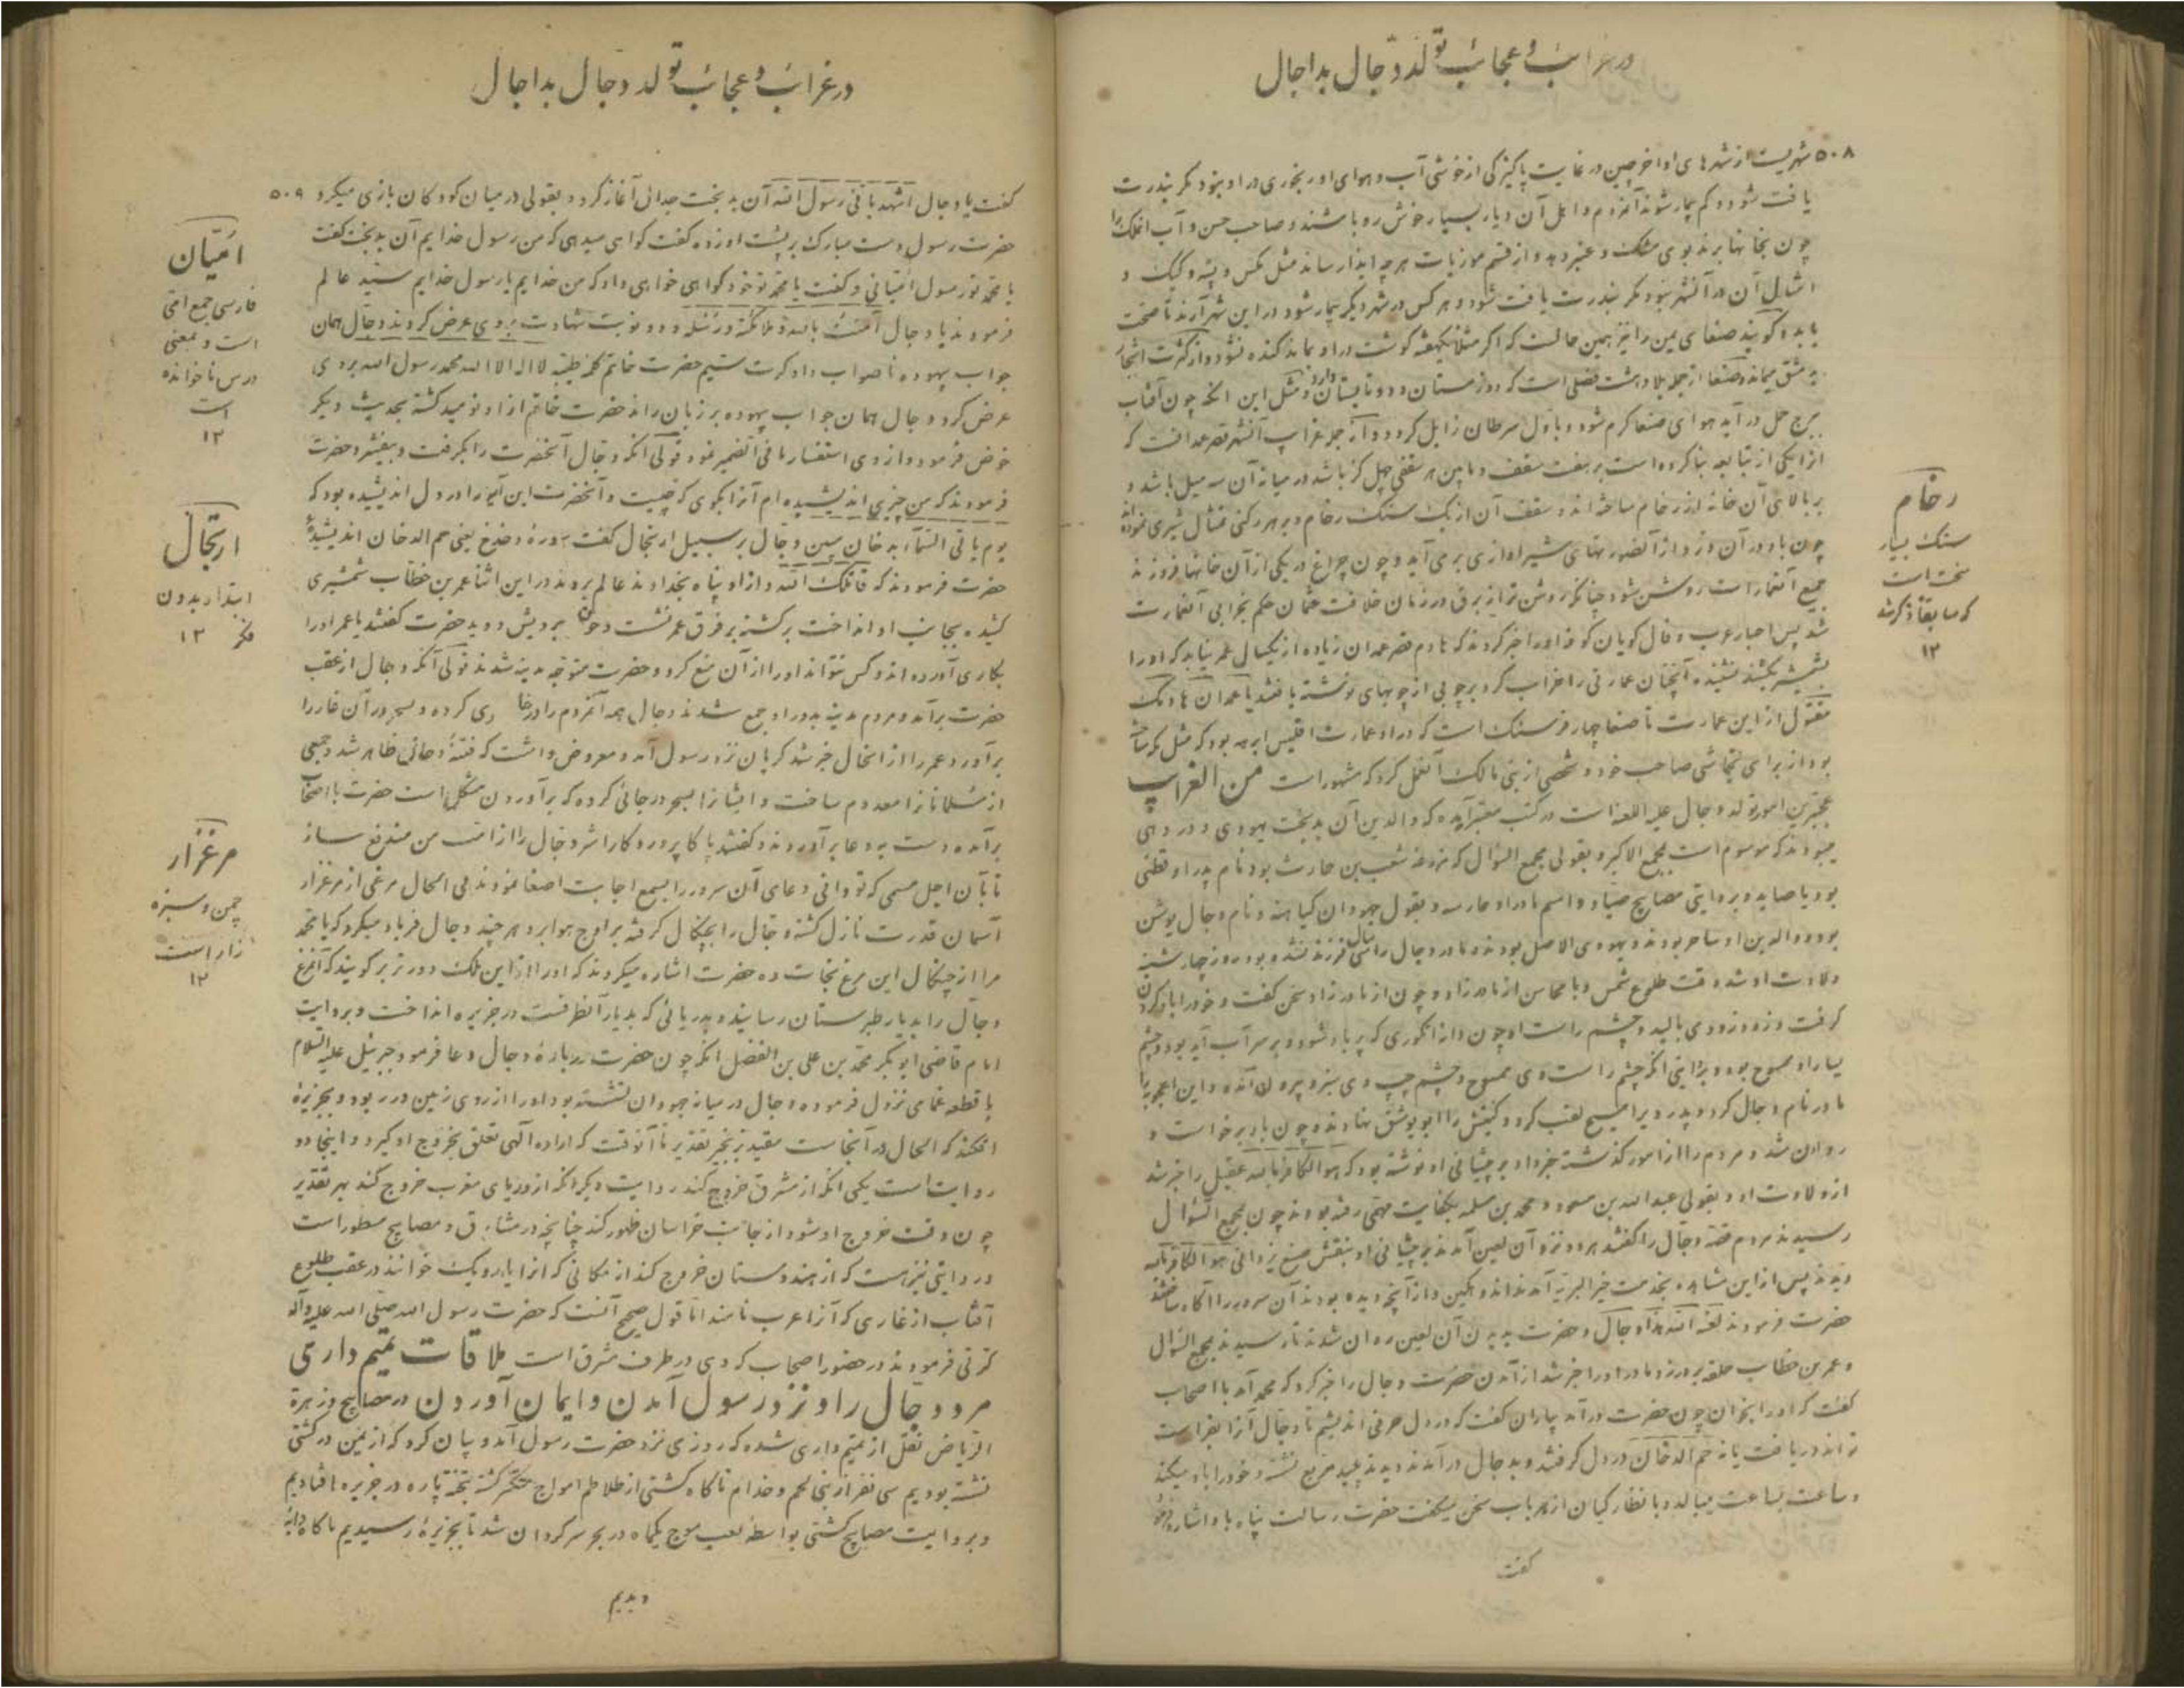 در غرائب و عجائب تولد دجال بداجال
۵۰۸ شهریست از شهرهای اواخر چین در غایت پاکیزگی از خوشی آب و هوای او رنجوری در او نبود مگر بندرت
یافت شود و کم بیمار شوند آنمردم و اهل آن دیار بسیار خوش رو باشند و صاحب حسن و آب آنملک را
چون بخانها برند بوی مشک و عنبر دهد و از قسم موزیات هرچه ایذا رساند مثل مگس و پشه و کیک و
امثال آن در آنشهر نبود مگر بندرت یافت شود و هر کس در شهر دیگر بیمار شود در این شهر آرند تا صحت
یابد و گویند صنعای یمن را نیز همین حالت که اگر مثلا یکهفته گوشت در او بماند گنده نشود و از کثرت اشجار
به دمشق میماند و صنعا از جمله بلاد هشت فصلی است که دو زمستان و دو تابستان دارد و مثل این آنکه چون آفتاب
ببرج حمل در آید هوای صنعا گرم شود و باول سرطان زایل گردد و از جمله غرایب آنشهر قصر غمدانست که
انرا یکی از تبابعه بنا کرده است بر هفت سقف و مابین هر سقفی چهل گز باشد در میانه آن سه میل باشد و
بر بالای آن خانه از رخام ساخته اند و سقف آن از یک سنگ رخام و بر هر رکنی تمثال شیری نموده اند
چون باد در آن وزد از آنصورتهای شیر آوازی برمی آید و چون چراغ در یکی از آن خانها فروزند
جمیع آنعمارات روشن شود چنانکه روشن تر از برق در زمان خلافت عثمان حکم بخرابی آنعمارت
شد پس احبار عرب و فال گویان کوفه او را خبر کردند که هادم قصر غمدان زیاده از یکسال عمر نیابد که او را
بشمشیر بکشند نشنیده آنچنان عمارتی را خراب کرد بر چوبی از چوبهای نوشته یافتند یا غمدان هادمک
مقتول از این عمارت تا صنعا چهار فرسنگ است که در او عمارت اقلیس ابرهه بود که مثل مکه ساخته
بود از برای نجاشی صاحب خود و شخصی از بنی مالک آنعمل کرد که مشهور است من الغرایب
عجیترین امور تولد دجال علیه اللعنه است در کتب معتبر آمده که والدین آن بدبخت یهودی و در دهی
میبودند که موسوم است بمجمع الاکبر و بقولی مجمع السؤال که مزرعه شعب بن حارث بود نام پدر او قطنی
بود یا صاید و بروایتی مصابیح صیاد و اسم مادر او حارسه و بقول جهودان کیاهنه و نام دجال یوشن
بود و والدین او ساحر بودند و یهودی الاصل بودند و مادر دجال را سی سال فرزند نشده بود روز چهارشنبه
ولادت او شد وقت طلوع شمس و با محاسن از مادر زاد و چون از مادر زاد سخن گفت و خود را باد کردن
گرفت و زود زود می بالید و چشم راست او چون دانه انگوری که پر باد شود و بر سر آب آید بود و چشم
یسار او ممسوح بود و بروایتی آنکه چشم راست وی ممسوح و چشم چپ وی سبز و بیرون آمده و این اعجوبه را
مادر نام دجال کرد و پدر ویرا مسیح لقب کرد و کنیتش را ابو یوشق نهادند و چون باد برخواست و
روان شد و مردم را از امور گذشته خبر داد بر پیشانی او نوشته بود که هو الکافر بالله عقیل را خبر شد
از ولادت او و بقولی عبدالله بن مسعود و محمد بن سلمه بکفایت مهمی رفته بودند چون بمجمع السؤال
رسیدند مردم قصه دجال را گفتند هر دو نزد آن لعین آمدند بر پیشانی او بنقش صنع یزدانی هو الکافر بالله
دیدند پس از این مشاهده بخدمت خیر البریه آمدند اندوهگین و از آنچه دیده بودند آن سرور را آگاه ساختند
حضرت فرمودند لعنه الله هذا دجال و حضرت بدیدن آن لعین روان شدند تا رسیدند بمجمع السؤال
و عمر بن خطاب حلقه بر در زد مادر او را خبر شد از آمدن حضرت دجال را خبر کرد که محمد آمد با اصحاب
گفت که او را بخوان چون حضرت در آمد بیاران گفت که در دل حرفی اندیشیم تا دجال آنرا بفراست
تواند دریافت یا نه حم الدخان در دل گرفتند و بدجال در آمدند دیدند پلید مربع نشسته و خود را باد میکند
و ساعت بساعت میبالد و بانظارگیان از هر باب سخن میگفت حضرت رسالت پناه باو اشاره فرمود
گفت
رخام
سنگ بسیار
سخت است
که سابقا ذکر شد
۱۲
در غرائب و عجائب تولد دجال بداجال
گفت یا دجال اشهد بانی رسول الله آن بدبخت جدالی آغاز کرد و بقولی در میان کودکان بازی میکرد ۵۰۹
حضرت رسول دست مبارک بر پشت او زده گفت گواهی میدهی که من رسول خدایم آن بدبخت گفت
یا محمد تو رسول امیانی و گفت یا محمد تو خود گواهی خواهی داد که من خدایم یا رسول خدایم سید عالم
فرمودند یا دجال آمنت بالله و ملائکته و رسله و دو نوبت شهادت بروی عرض کردند دجال همان
جواب بیهوده ناصواب داد کرت سیم حضرت خاتم کلمه طیبه لا اله الا الله محمد رسول الله بروی
عرض کرد دجال همان جواب بیهوده بر زبان راند حضرت خاتم از او نومید گشته بحدیث دیگر
خوض فرمود و از وی استفسار مافی الضمیر نمود قولی آنکه دجال آنحضرت را بگرفت و بیفشرد حضرت
فرمودند که من چیزی اندیشیده ام آنرا بگوی که چیست و آنحضرت این آیه را در دل اندیشیده بود که
یوم یاتی السماء بدخان مبین دجال بر سبیل ارتجال گفت سوره دخ دخ یعنی حم الدخان اندیشیده
حضرت فرمودند که قاتلک الله و از او پناه بخداوند عالم بردند در این اثنا عمر بن خطاب شمشیری
کشیده بجانب او انداخت برگشته بر فرق عمر نشست و خون برویش دوید حضرت گفتند یا عمر او را
بکاری آورده اند و کس نتواند او را از آن منع کرد و حضرت متوجه مدینه شدند قولی آنکه دجال از عقب
حضرت بر آمد و مردم مدینه بدور او جمع شدند دجال همه آنمردم را در غاری کرده و بسحر در آن غار را
برآورد و عمر را از انحال خبر شد گریان نزد رسول آمد و معروض داشت که فتنه دخانی ظاهر شد و جمعی
از مسلمانانرا معدوم ساخت و ایشانرا بسحر در جائی کرده که برآوردن مشکل است حضرت با اصحاب
برآمده دست بدعا برآوردند و گفتند یا کا پروردگارا شر دجال را از امت من مندفع ساز
تا بآن اجل مسمی که تو دانی دعای آن سرور را بسمع اجابت اصغا نمودند فی الحال مرغی از مرغزار
آسمان قدرت نازل گشته دجال را بچنگال گرفته بر اوج هوا برد هرچند دجال فریاد میکرد که یا محمد
مرا از چنگال این مرغ نجات ده حضرت اشاره میکردند که او را از این ملک دورتر بر گویند که آنمرغ
دجال را بدیار طبرستان رسانید و بدریائی که بدیار آنطرفست در جزیره انداخت و بروایت
امام قاضی ابوبکر محمد بن علی بن الفضل آنکه چون حضرت درباره دجال دعا فرمود جبرئیل علیه السلام
با قطعه غمامی نزول فرموده دجال در میانه جهودان نشسته بود او را از روی زمین در ربود و بجزیره
افکند که الحال در آنجاست مقید بزنجیر تقدیر تا آنوقت که اراده الهی تعلق بخروج او گیرد و اینجا دو
روایت است یکی آنکه از مشرق خروج کند روایت دیگر آنکه از دریای مغرب خروج کند بهر تقدیر
چون وقت خروج او شود از جانب خراسان ظهور کند چنانچه در مشارق و مصابیح مسطور است
و روایتی نیز هست که از هندوستان خروج کند از مکانی که انرا خوانند در عقب طلوع
آفتاب از غاری که آنرا عرب نامند اما قول صحیح آنست که حضرت رسول الله صلی الله علیه وآله
کرتی فرمودند در حضور اصحاب که وی در طرف مشرق است ملاقات تمیم دارمی
مر دجال را و نزد رسول آمدن و ایمان آوردن در مصابیح و زهرة
الریاض نقل از تمیم داری شده که روزی نزد حضرت رسول آمد و بیان کرد که از یمن در کشتی
نشسته بودیم سی نفر از بنی لخم و خدام ناگاه کشتی از طلاطم امواج شکسته گشته بتخته پاره در جزیره افتادیم
و بروایت مصابیح کشتی بواسطه لعب موج یکماه در بحر سرگردان شد تا بجزیره رسیدیم ناگاه دابه
دیدیم
امیان
فارسی جمع امی
است و بمعنی
درس ناخوانده
است
۱۲
ارتجال
ابتدا بدون
فکر ۱۲
مرغزار
چمن و سبزه
زار است
۱۲